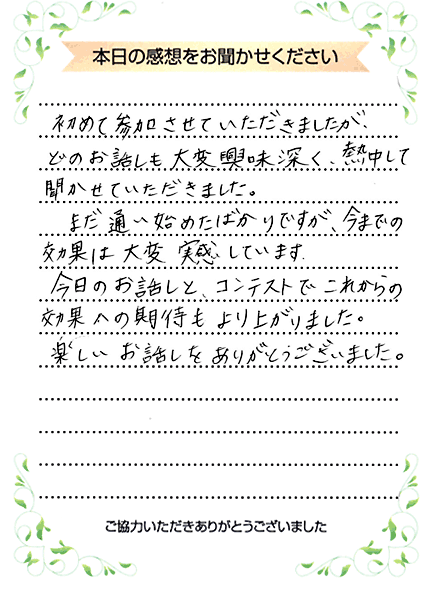 本日の感想をお聞かせください
初めて参加させていただきましたが、
どのお話しも大変興味深く、熱中して
聞かせていただきました。
まだ通い始めたばかりですが、今までの
効果は大変実感しています.
今日のお話しと、コンテストでこれからの
効果への期待もより上がりました。
楽しいお話しをありがとうございました。
ご協力いただきありがとうございました